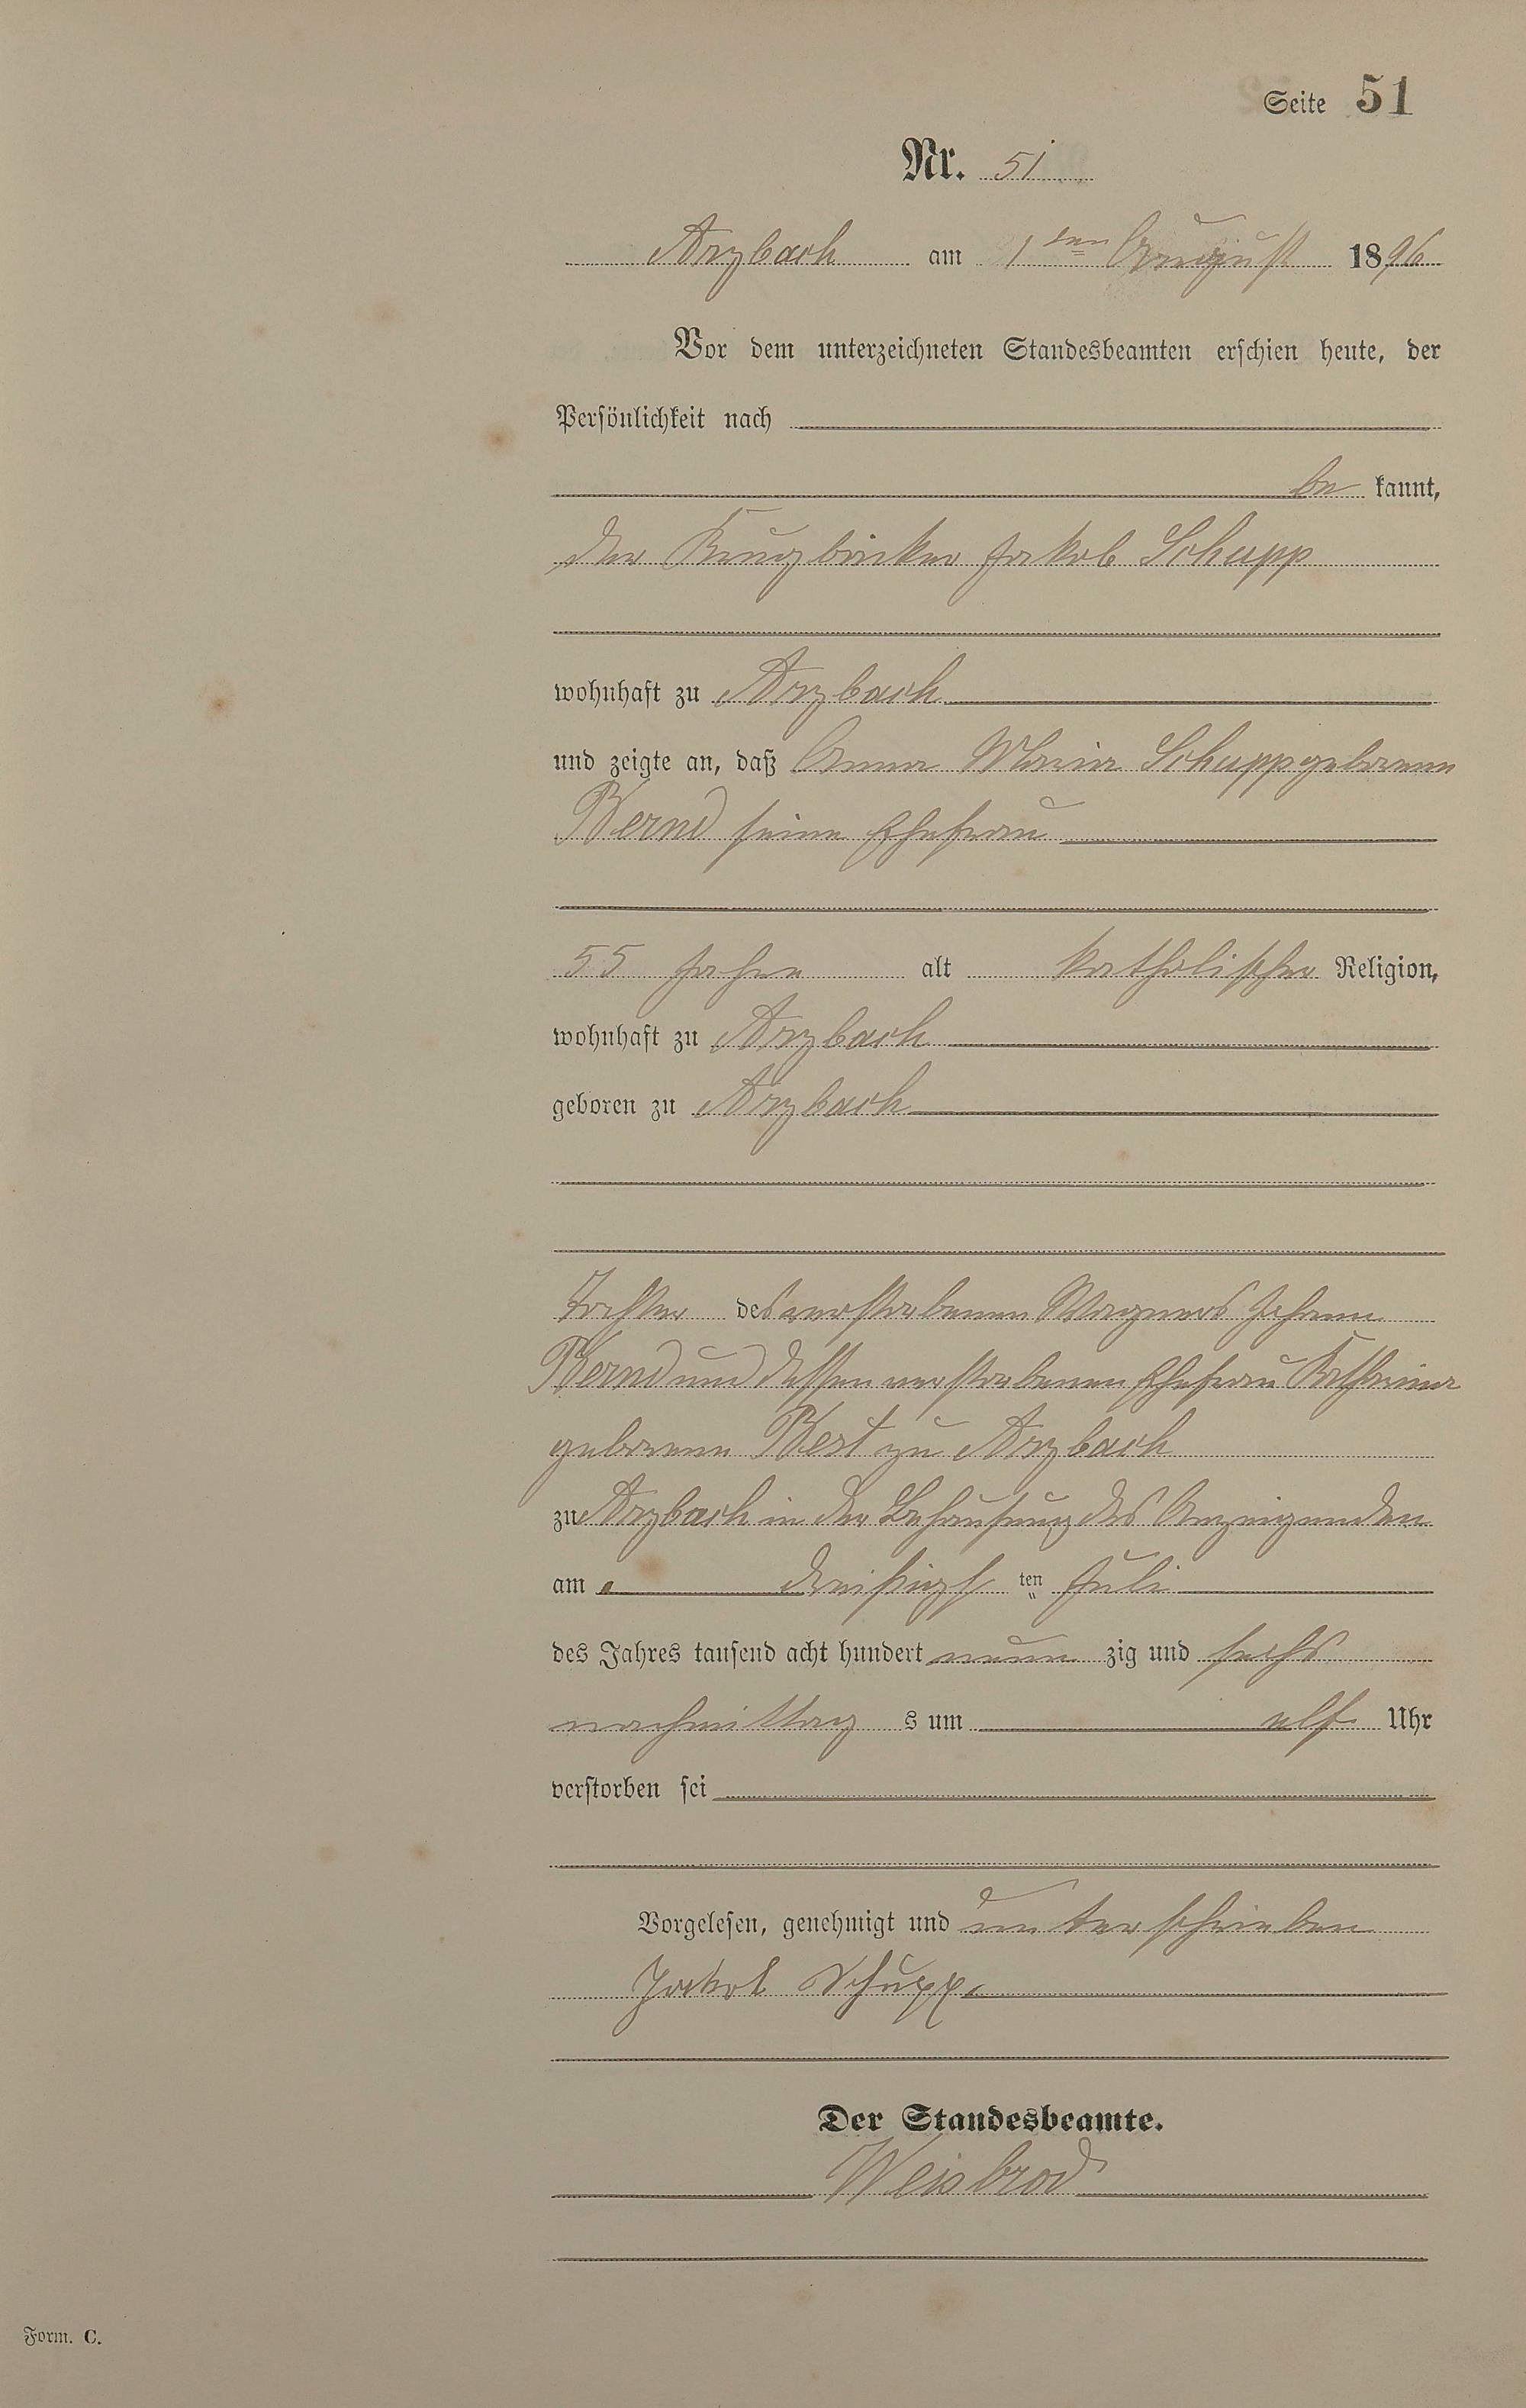 Seite 51
Nr. 51
Arzbach am 1ten August 1896
Vor dem unterzeichneten Standesbeamten erschien heute, der
Persönlichkeit nach
be kannt,
der Krugbäcker Jakob Schupp
wohnhaft zu Arzbach
und zeigte an, daß Anna Maria Schupp geborenen
Bernd seine Ehefrau
55 Jahre alt katholischer Religion,
wohnhaft zu Arzbach
geboren zu Arzbach
Tochter des verstorbenen Wagners Johann
Bernd und dessen verstorbenen Ehefrau Katharina
geborenen Best zu Arzbach
zu Arzbach in der Behausung des Anzeigenden
am dreißigsten Juli
des Jahres tausend acht hundert neun zig und sechs
nachmittag s um elf Uhr
verstorben sei
Vorgelesen, genehmigt und unterschrieben
Jakob Schupp
Der Standesbeamte.
Weisbrod
Form. C.